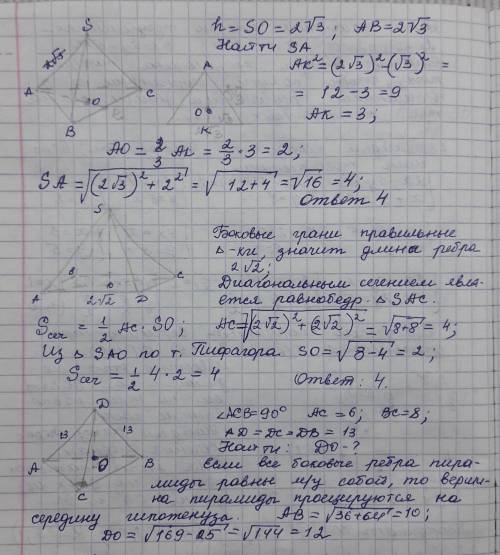 h = SO = 2√3 ; AB = 2√3
Найти SA
S
2√3
A
O
C
B
A
O
K
AK² = (2√3)² (√3)² =
= 12 - 3 = 9
AK = 3 ;
AO = 2/3 AK = 2/3 · 3 = 2 ;
SA = √(2√3)² + 2² = √12 + 4 = √16 = 4 ;
Ответ 4
S
B
C
A
O
D
2√2
Боковые грани правильные
△-ки, значит длина ребра
2√2 ;
Диагональным сечением явля-
ется равнобедр. △ SAC.
Sсеч = 1/2 AC · SO ; AC = √(2√2)² + (2√2)² = √8+8 = 4 ;
Из △ SAO по т. Пифагора SO = √8-4 = 2 ;
Sсеч = 1/2 4 · 2 = 4
Ответ : 4.
D
13
13
A
O
B
C
∠ACB = 90° AC = 6 ; BC = 8 ;
AD = DC = DB = 13
Найти : DO - ?
Если все боковые ребра пира-
миды равны м/у собой, то верши-
на пирамиды проецируются на
середину гипотенуза. AB = √36+64 = 10 ;
DO = √169 - 25 = √144 = 12